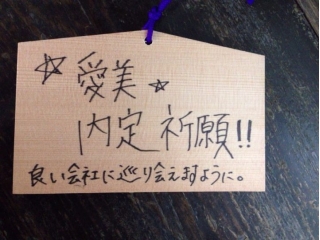 ☆愛美☆
内定祈願!!
良い会社に巡り会えますように。